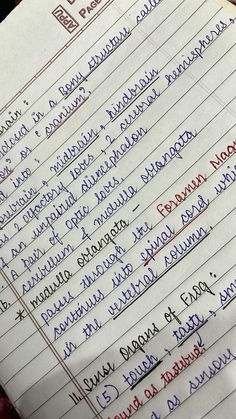 PAGE
rain :
enclosed in a Bony structure calle
" or " cranium".
into :
forebrain, midbrain, hindbrain
2 olfactory lobes, 2 cerebral hemispheres,
& an unpaired diencephalon
A pair of optic lobes.
cerebellum & medulla oblongata
* medulla oblongata -
passes through the Foramen Mag
continues into spinal cord whi
in the vertebral column.
11. Sense Organs of Frog :
(5) touch, taste, sm
ound as tastebud
d as sensory